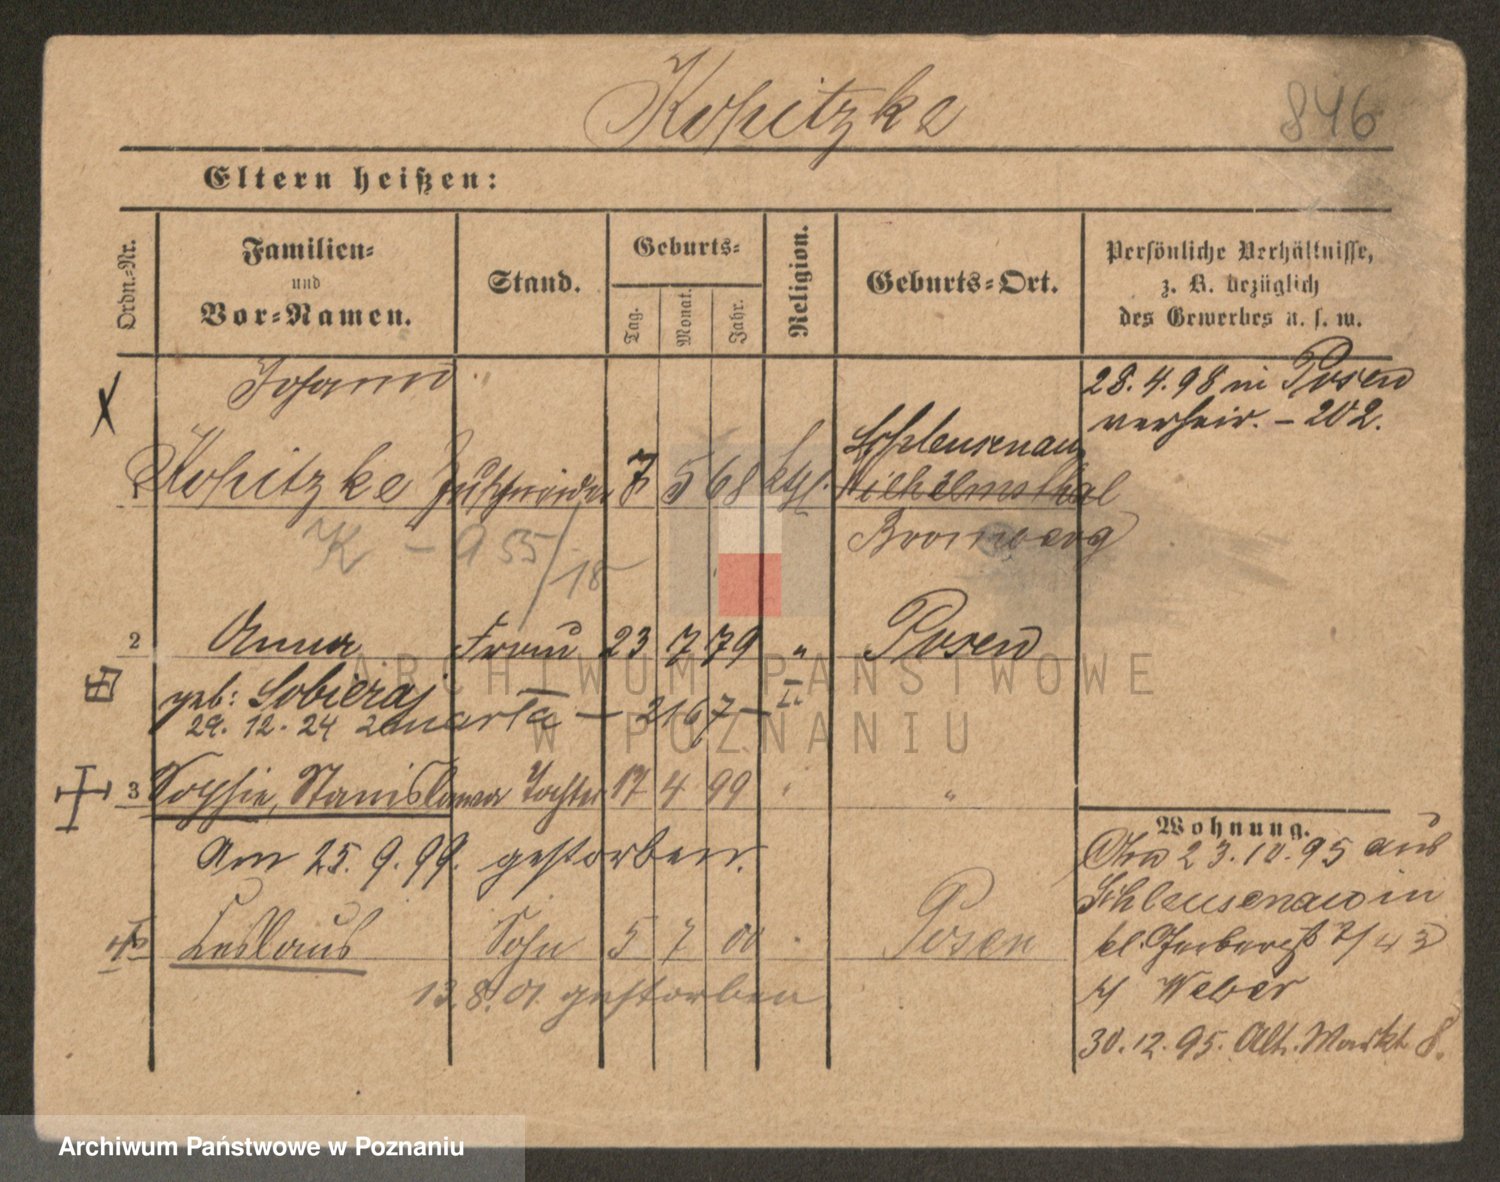 Kopitzke
846
Eltern heißen:
Ordn.-Nr.
Familien-
und
Vor-Namen.
Stand.
Geburts-
Tag.
Monat.
Jahr.
Religion.
Geburts-Ort.
Persönliche Verhältnisse,
z. B. bezüglich
des Gewerbes u. s. w.
Johann
28.4.98 in Posen
verheir. - 202.
Schleusenau
1 Kopitzke Zuschneider 7 5 68 ktl. Wilhelmsthal
Bromberg
K - 955/18
2 Anna Frau 23 7 79 " Posen
geb: Sobieraj
29.12.24
3 Sophie, Stanislawa Tochter 17 4 99 " "
Am 25.9.99. gestorben.
Wohnung.
23.10.95 aus
Schleusenau in
Leslaus Sohn 5 7 00 " Posen
kl. Gerberstr 7/43
b/ Weber
13.8.01. gestorben
30.12.95. Alt. Markt 8.
ARCHIWUM PAŃSTWOWE
W POZNANIU
Archiwum Państwowe w Poznaniu